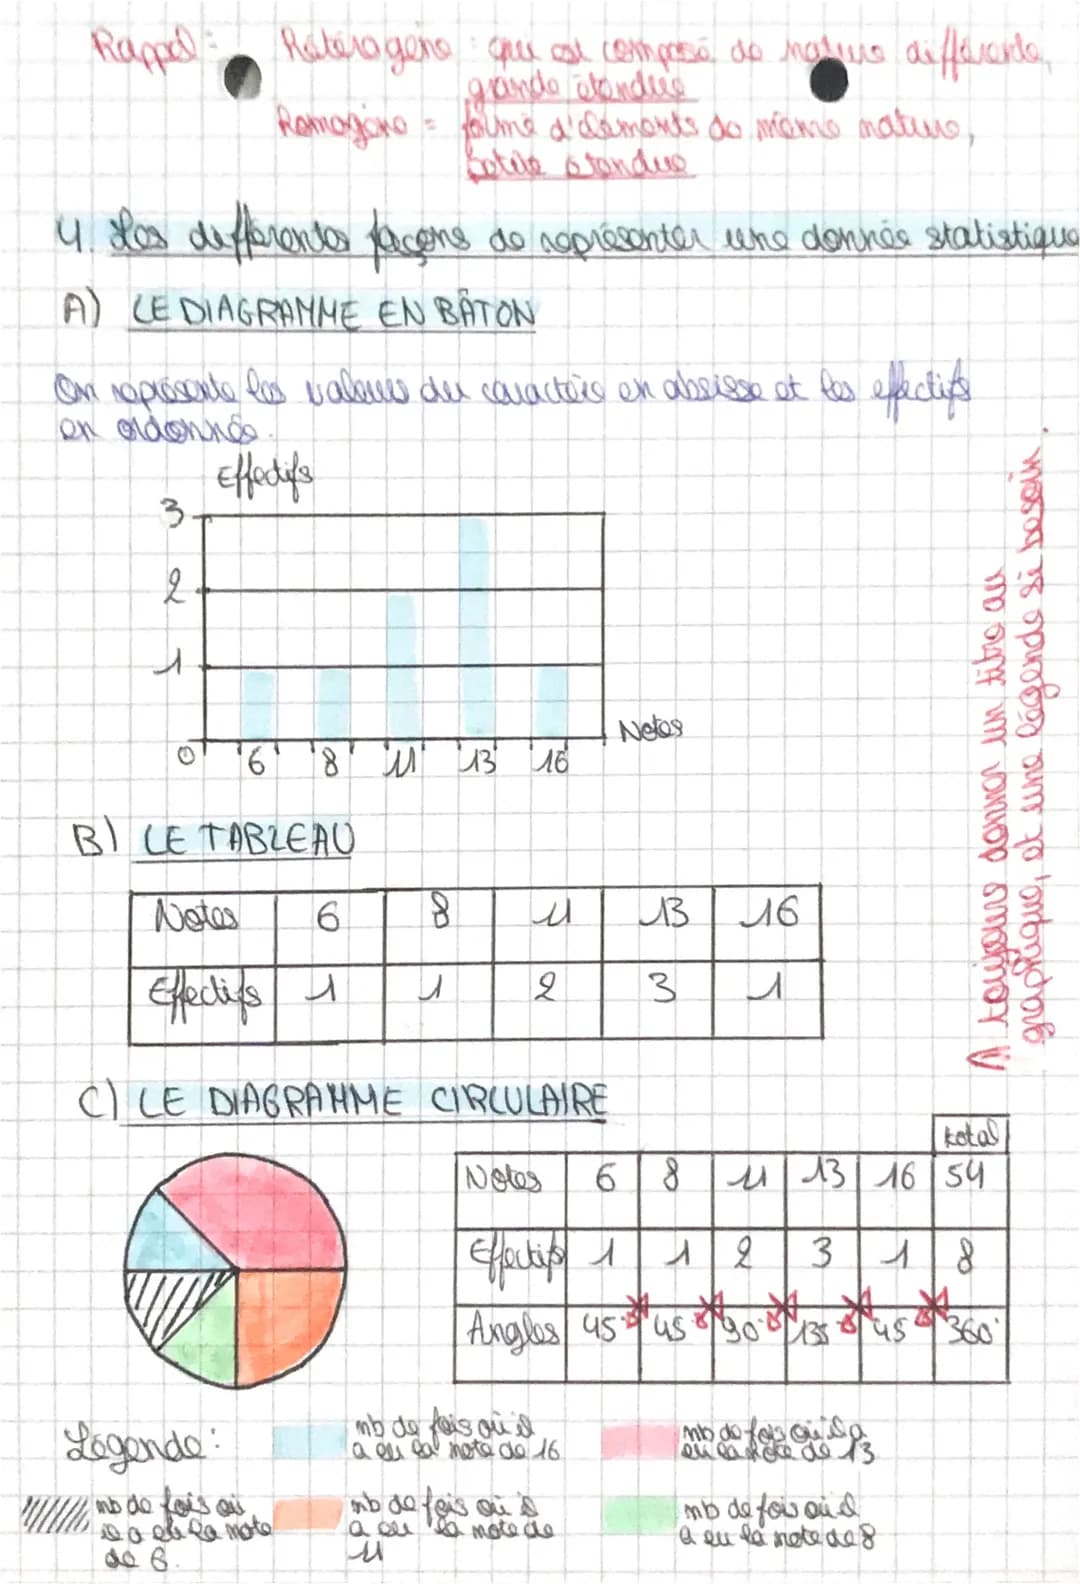 Rappel : Hétérogène : qui est composé de nature différente,
grande étendue
Homogène = formé d'éléments de même nature,
petite étendue
4. Les différentes façons de représenter une donnée statistique
A) LE DIAGRAMME EN BÂTON
On représente les valeurs du caractère en abscisse et les effectifs
en ordonnée.
Effectifs
3
2
1
0 6 8 11 13 16 Notes
⚠ toujours donner un titre au
graphique, et une légende si besoin.
B) LE TABLEAU
Notes 6 8 11 13 16
Effectifs 1 1 2 3 1
C) LE DIAGRAMME CIRCULAIRE
total
Notes 6 8 11 13 16 54
Effectifs 1 1 2 3 1 8
Angles 45° 45 90° 135 45 360°
Légende :
nb de fois où il
a eu la note de 16
nb de fois où il a
eu la note de 13
nb de fois où
il a eu la note
de 6.
nb de fois où il
a eu la note de
11
nb de fois où il
a eu la note de 8